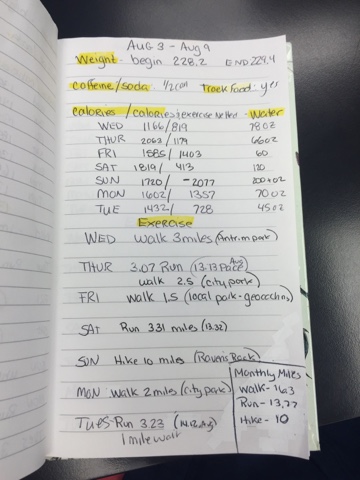 AUG 3 - Aug 9
Weight - begin 228.2 END 229.4
caffeine/soda: 1/2 can Track food: yes
calories /calories: exercise netted - Water
WED 1166/819 78oz
THUR 2063/1179 66oz
FRI 1585/1403 60
SAT 1819/413 120
SUN 1720/-2077 200+oz
MON 1602/1357 70oz
TUE 1432/728 45oz
Exercise
WED walk 3 miles (Antrim park)
THUR 3.07 Run (13:13 Pace Avg)
walk 2.5 (city park)
FRI walk 1.5 (local park - geocaching)
SAT Run 3.31 miles (13:32)
SUN Hike 10 miles (Ravens Rock)
MON walk 2 miles (city park)
TUES Run 3.23
1 mile walk
Monthly Miles
walk-
Run - 13.77
Hike - 10